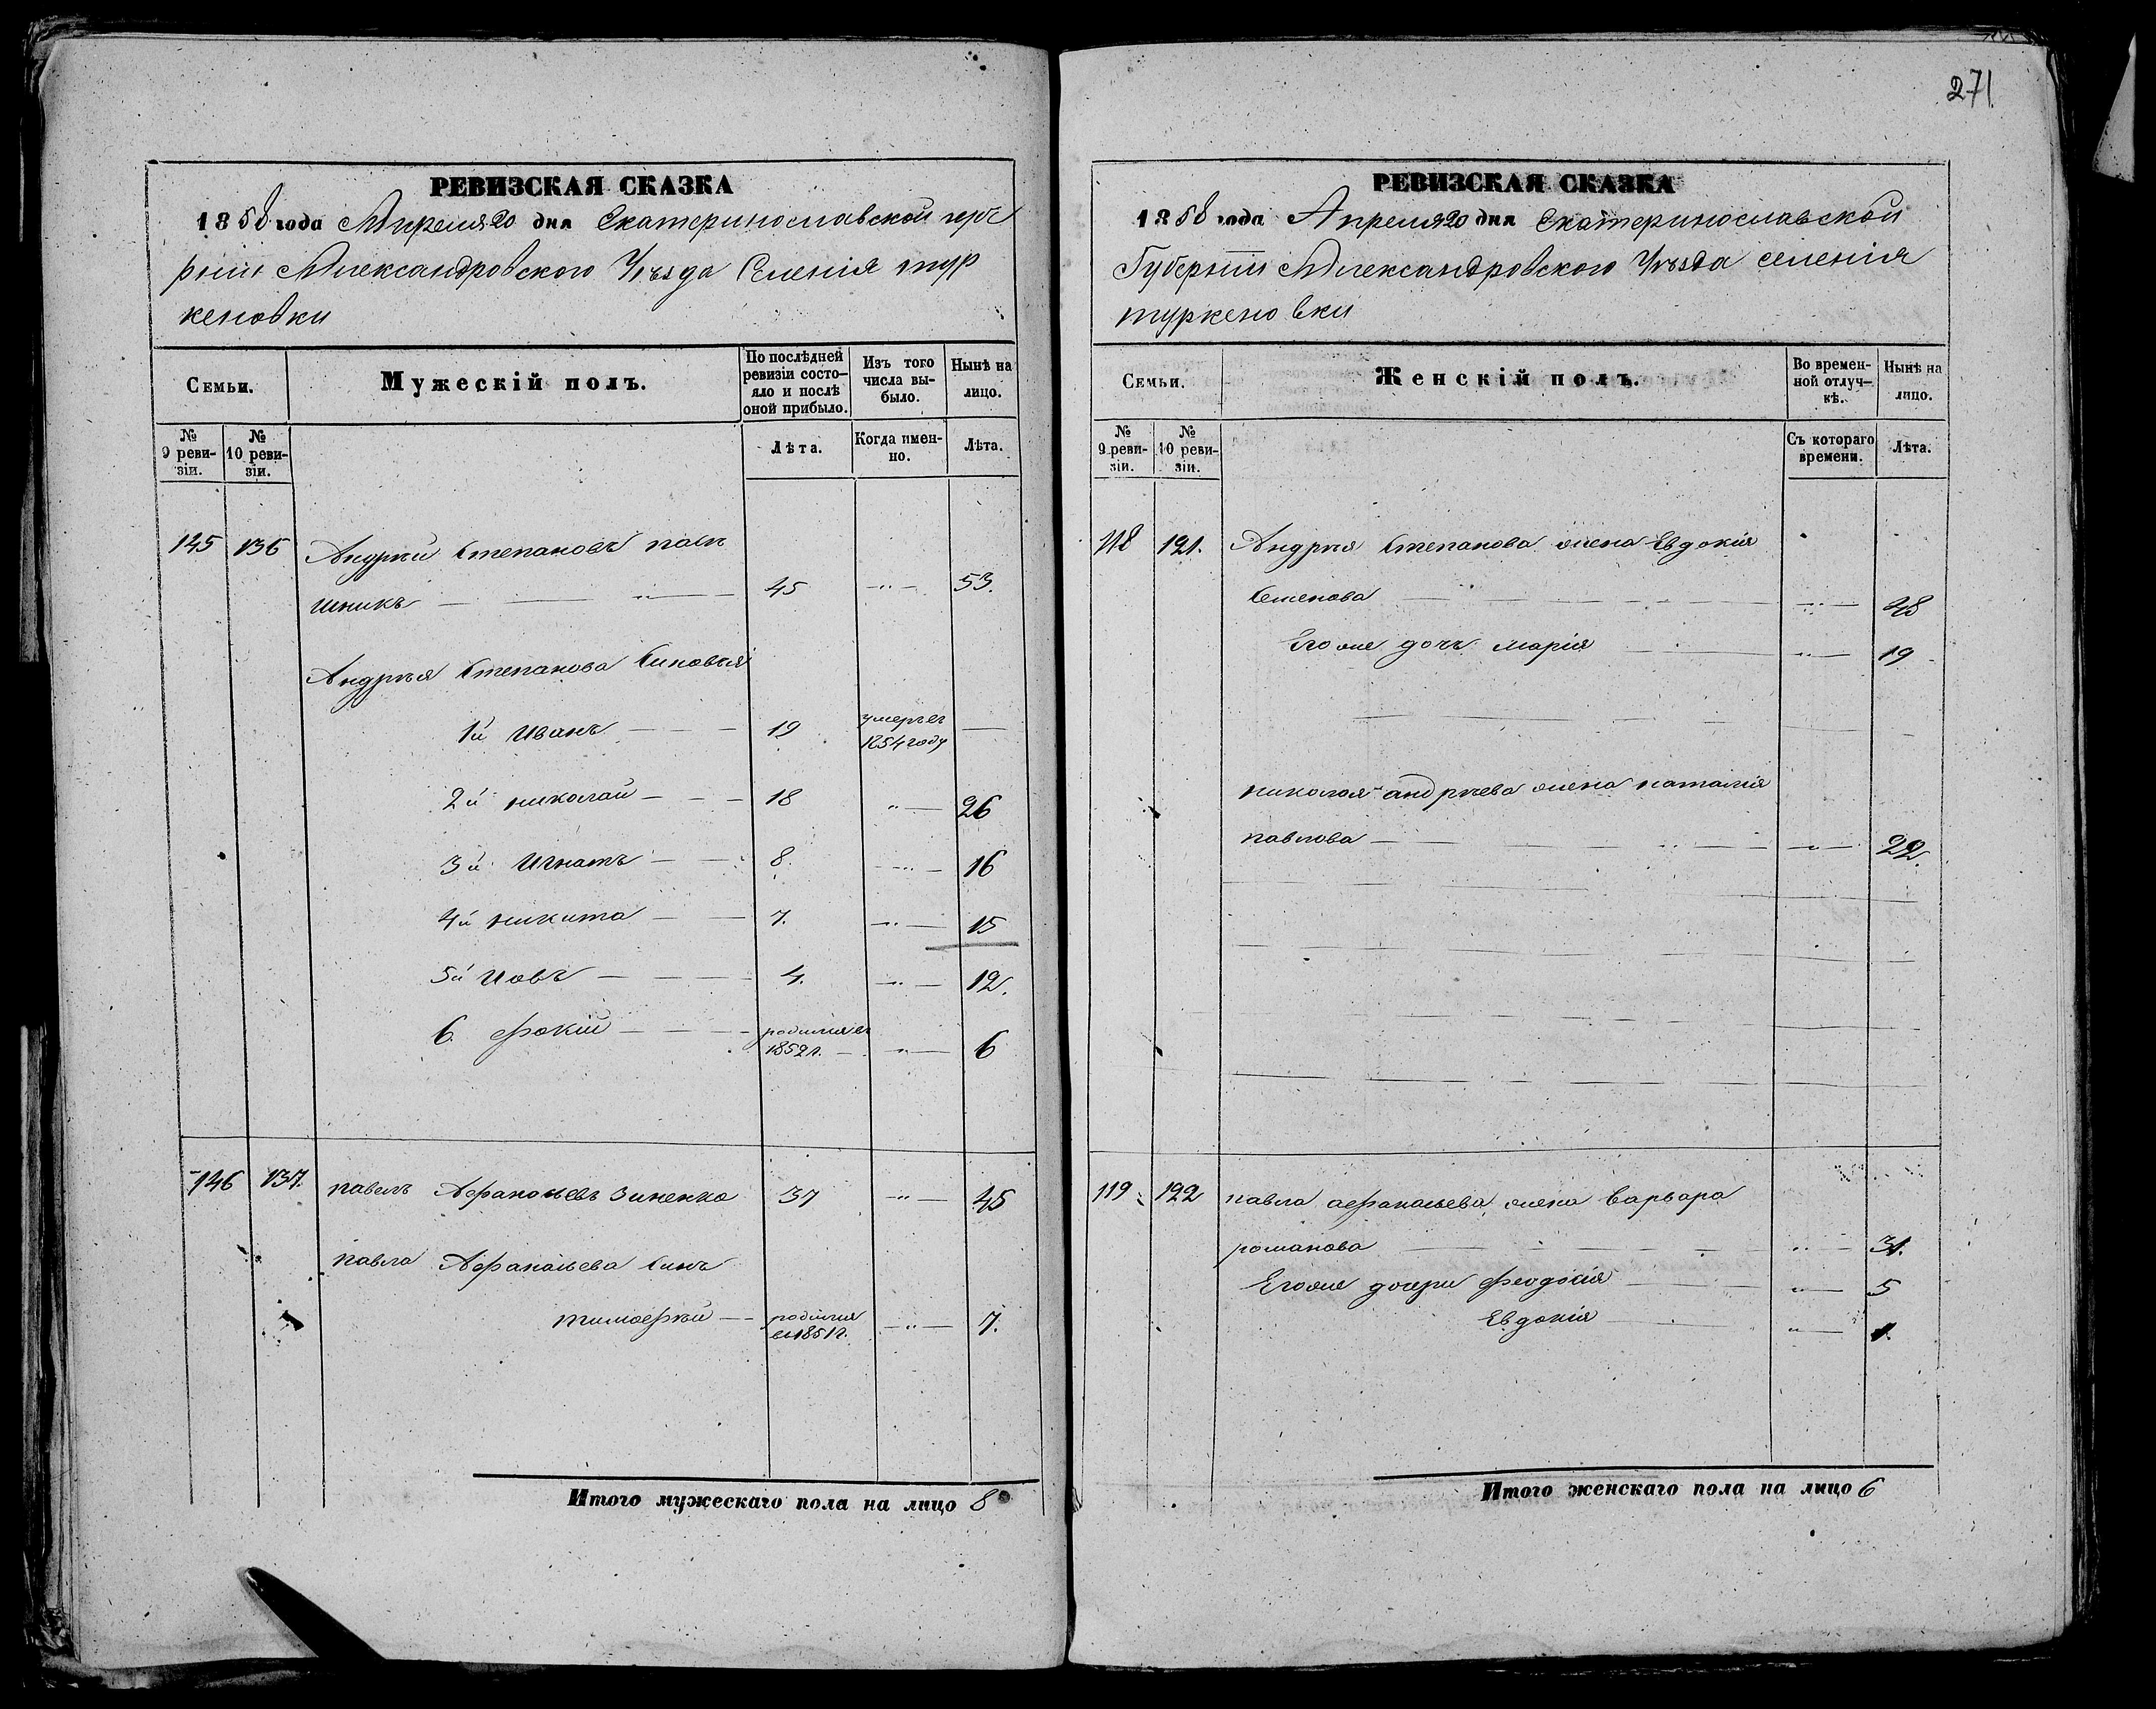 РЕВИЗСКАЯ СКАЗКА
1858 года Апреля 20 дня Екатеринославской губе
рнии Александровского Уѣзда Селенія тур
кеновки
Семьи.
Мужескій полъ.
По послѣдней ревизіи состо-яло и послѣ оной прибыло.
Изъ того числа вы-было.
Нынѣ на лицо.
№ 9 реви-зіи.
№ 10 реви-зіи.
Лѣта.
Когда имен-но.
Лѣта.
145 136 Андрѣй Степановъ
шникъ — 45 — 53.
Андрѣя Степанова Синовья
1й Иванъ — 19 умеръ въ 1854 году —
2й николай — 18 — 26
3й Игнатъ — 8. — 16
4й никита — 7. — 15
5й Иовъ — 4. — 12.
6. Фокій — родился въ 1852 г. — 6
146 137. павелъ Афанасьевъ Зиненко 37 — 45
павла Афанасьева Синъ
тимофѣй — родился въ 1851 г. — 7.
Итого мужескаго пола на лицо 8
271.
РЕВИЗСКАЯ СКАЗКА
1858 года Апреля 20 дня Екатеринославской
Губернии Александровского Уѣзда селенія
туркеновки
Семьи.
Женскій полъ.
Во времен-ной отлуч-кѣ.
Нынѣ на лицо.
№ 9 реви-зіи.
№ 10 реви-зіи.
Съ котораго времени.
Лѣта.
118 121. Андрѣя Степанова жена Евдокія
Семенова — 48
Егоже дочь марія — 19
николая андрѣева жена наталія
павлова — 22.
119 122 павла афанасьева жена Варвара
романова — 31.
Егоже дочери Феодосія — 5
Евдокія — 1.
Итого женскаго пола на лицо 6